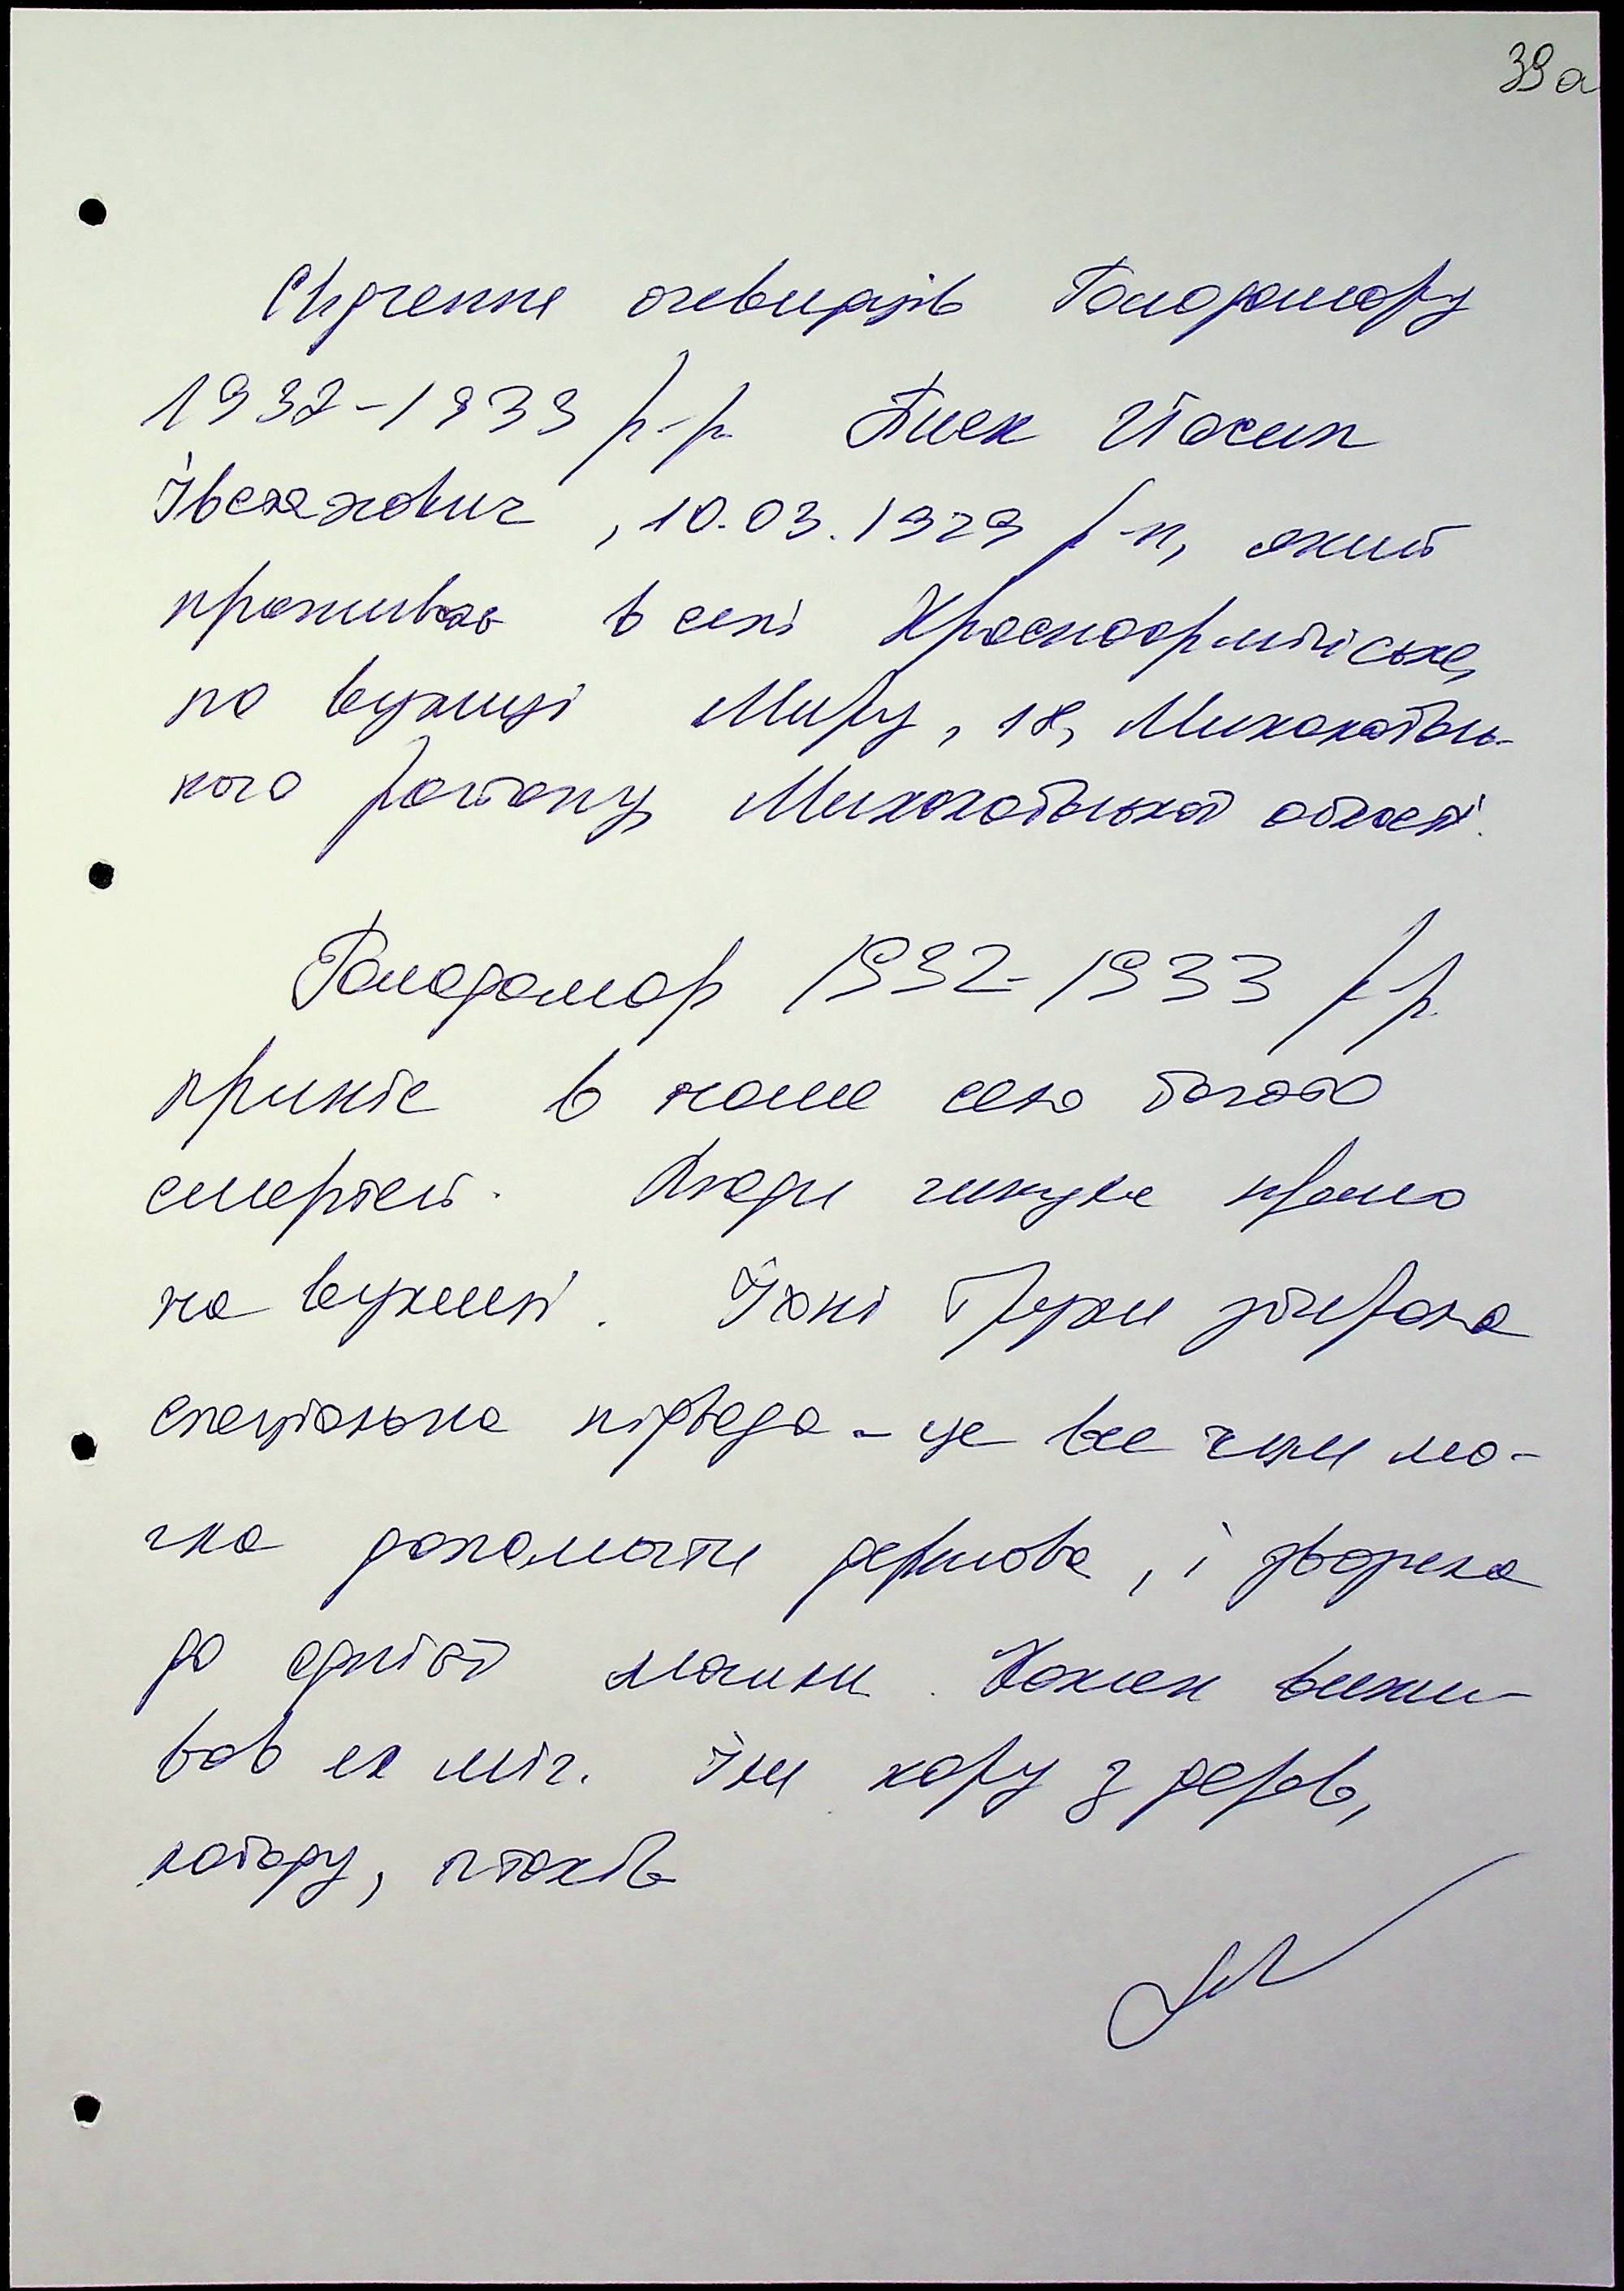 39а
Свідчення очевидців Голодомору
1932-1933 р-р. Йосип
, 10.03.1929 р-н, який
проживав в селі Красноармійське,
по вулиці Миру, 18, Миколаївсь-
кого району Миколаївської області.
Голодомор 1932-1933 р-р.
приніс в наше село багато
смертей. Люди гинули прямо
на вулиці. Їхні трупи збирала
спеціальна підвода - це все чим мо-
гла допомогти держава, і звозила
до однієї могили. Кожен вижи-
вав як міг. Їли кору з дерев,
лободу, птахів